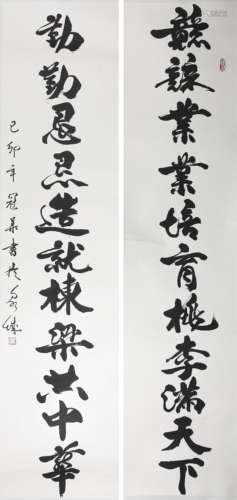 兢兢業業培育桃李滿天下
勤勤恳恳造就棟梁共中華
己卯年冠華書於